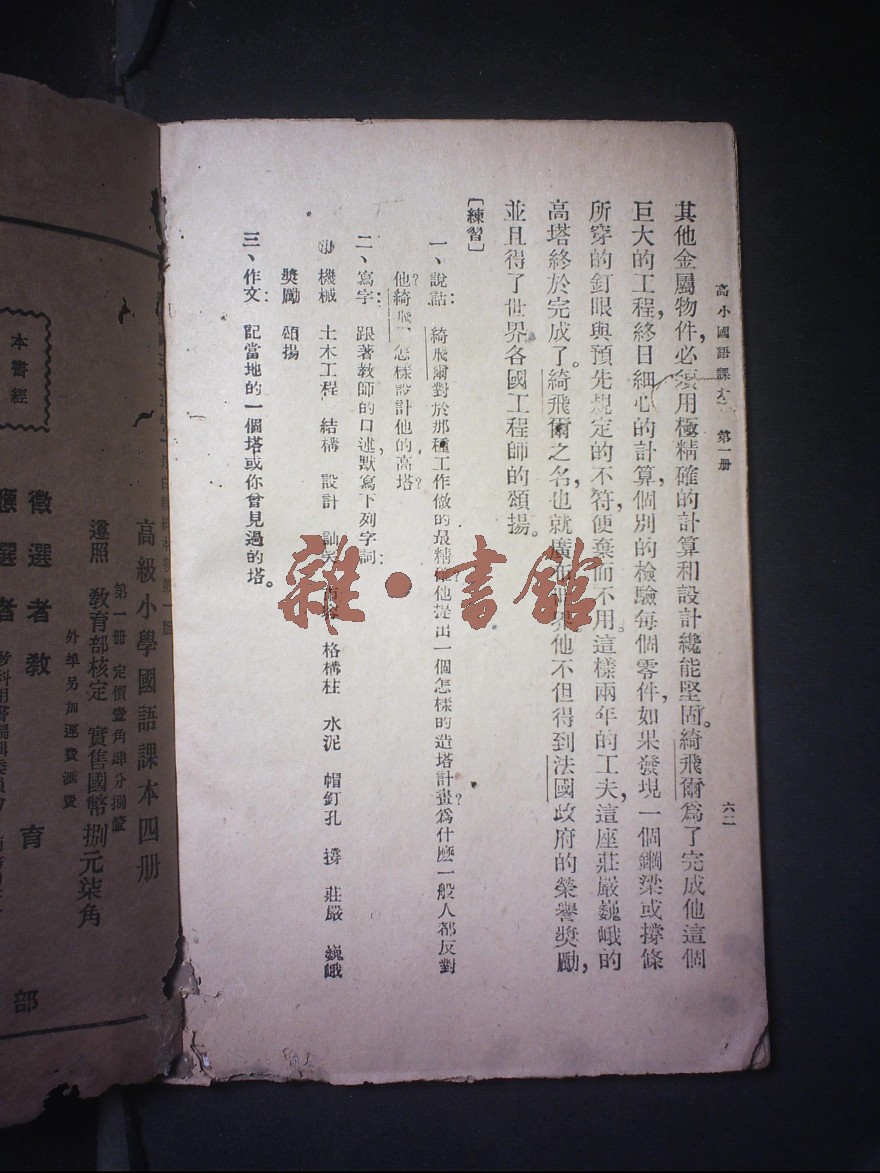 高小國語課本 第一册
六二
其他金屬物件，必須用極精確的計算和設計纔能堅固。綺飛爾爲了完成他這個
巨大的工程，終日細心的計算，個別的檢驗每個零件，如果發現一個鋼梁或撐條
所穿的釘眼與預先規定的不符，便棄而不用。這樣兩年的工夫，這座莊嚴巍峨的
高塔終於完成了。綺飛爾之名，也就廣 他不但得到法國政府的榮譽獎勵，
並且得了世界各國工程師的頌揚。
〔練習〕
一、說話：綺飛爾對於那種工作做的最精確？他提出一個怎樣的造塔計畫？爲什麼一般人都反對
他？綺飛 怎樣設計他的高塔？
二、寫字：跟著教師的口述，默寫下列字詞：
機械 土木工程 結構 設計 格構柱 水泥 帽釘孔 撐 莊嚴 巍峨
獎勵 頌揚
三、作文：記當地的一個塔或你曾見過的塔。
雜·書館
高級小學國語課本四册
第一册 定價壹角肆分捌釐
遵照 教育部核定 實售國幣捌元柒角
外埠另加運費滙費
徵選者教育部
應選者
本書經